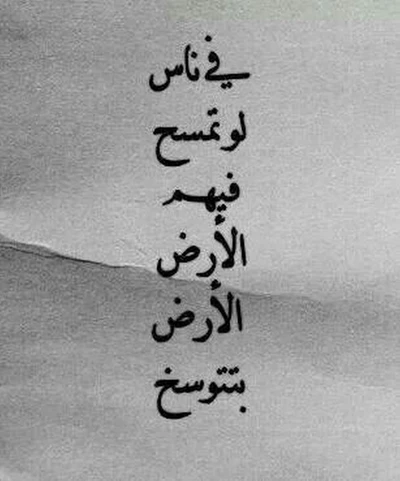 في ناس
لو تمسح
فيهم
الأرض
الأرض
بتتوسخ